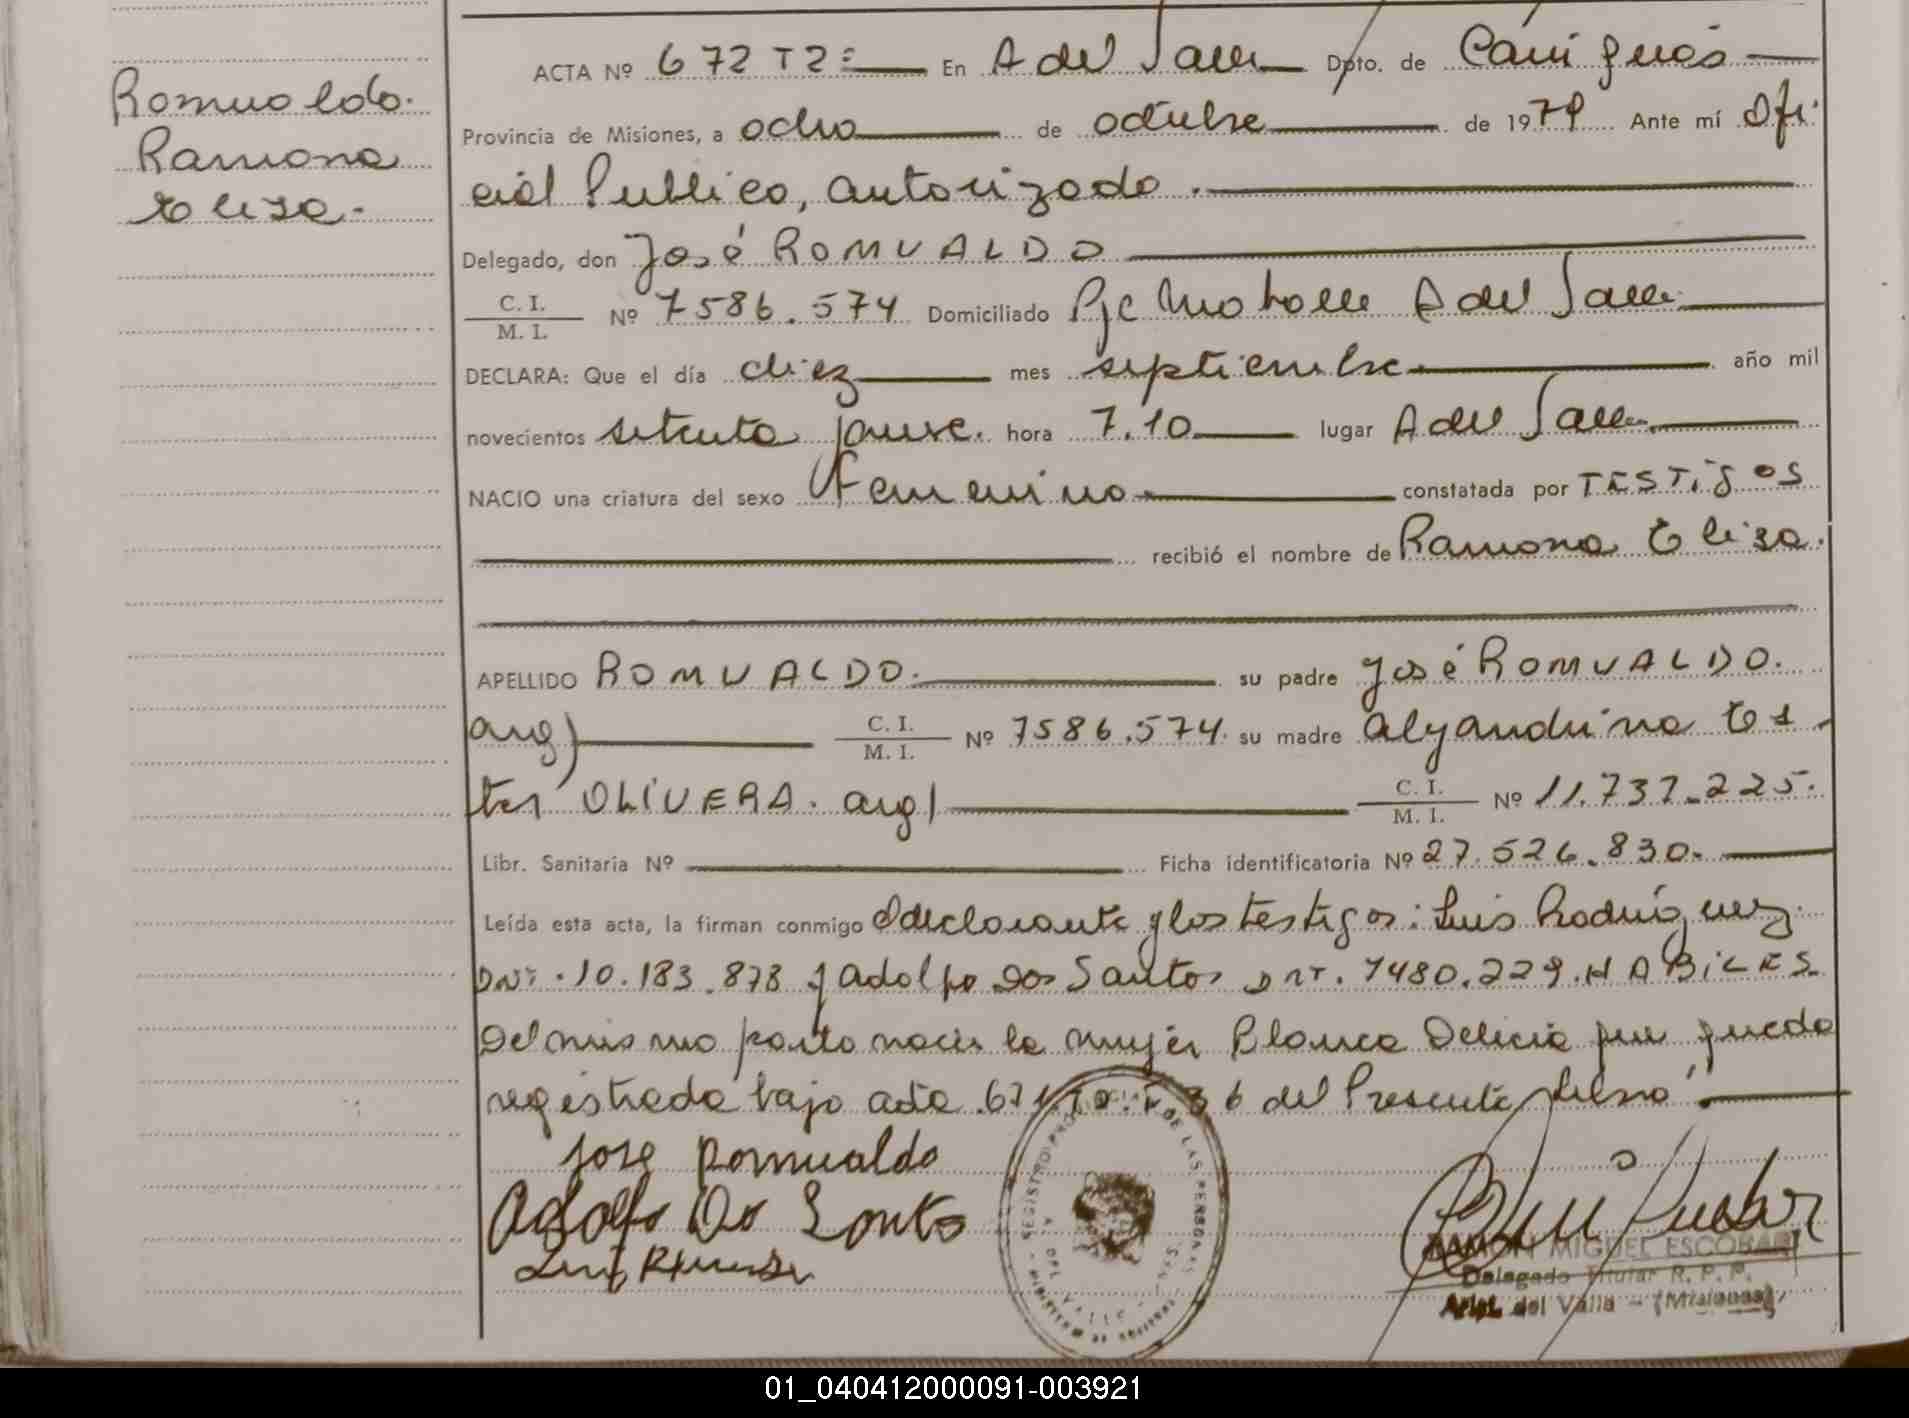 Romualdo.
Ramona
Elisa.
ACTA Nº 672 T 2= En A del Valle Dpto. de Cainguás
Provincia de Misiones, a ocho de octubre de 1979 Ante mí Ofi
cial Publico, autorizado.
Delegado, don José ROMUALDO
C. I.
M. I. Nº 7586.574 Domiciliado Pje A del Valle
DECLARA: Que el día diez mes septiembre año mil
novecientos setenta nueve. hora 7.10 lugar A del Valle
NACIO una criatura del sexo femenino constatada por TESTIGOS
recibió el nombre de Ramona Elisa.
APELLIDO ROMUALDO. su padre José ROMUALDO.
arg) C. I.
M. I. Nº 7586.574. su madre Alejandrina Es
ter OLIVERA. arg) C. I.
M. I. Nº 11.737.225.
Libr. Sanitaria Nº Ficha identificatoria Nº 27.526.830.
Leída esta acta, la firman conmigo el declarante y los testigos: Luis Rodriguez.
DNI. 10.183.878 y Adolfo Dos Santos DNI. 7480.229. HABILES.
Del mismo parto nacio la mujer Blanca Delicia que queda
registrada bajo acta del Presente libro.
Jose Romualdo
Adolfo Do Santo
REGISTRO PROVINCIAL DE LAS PERSONAS
DEL VALLE
RAMON MIGUEL ESCOBAR
Delegado Titular R. P. P.
Arist. del Valle - (Misiones)
01_040412000091-003921